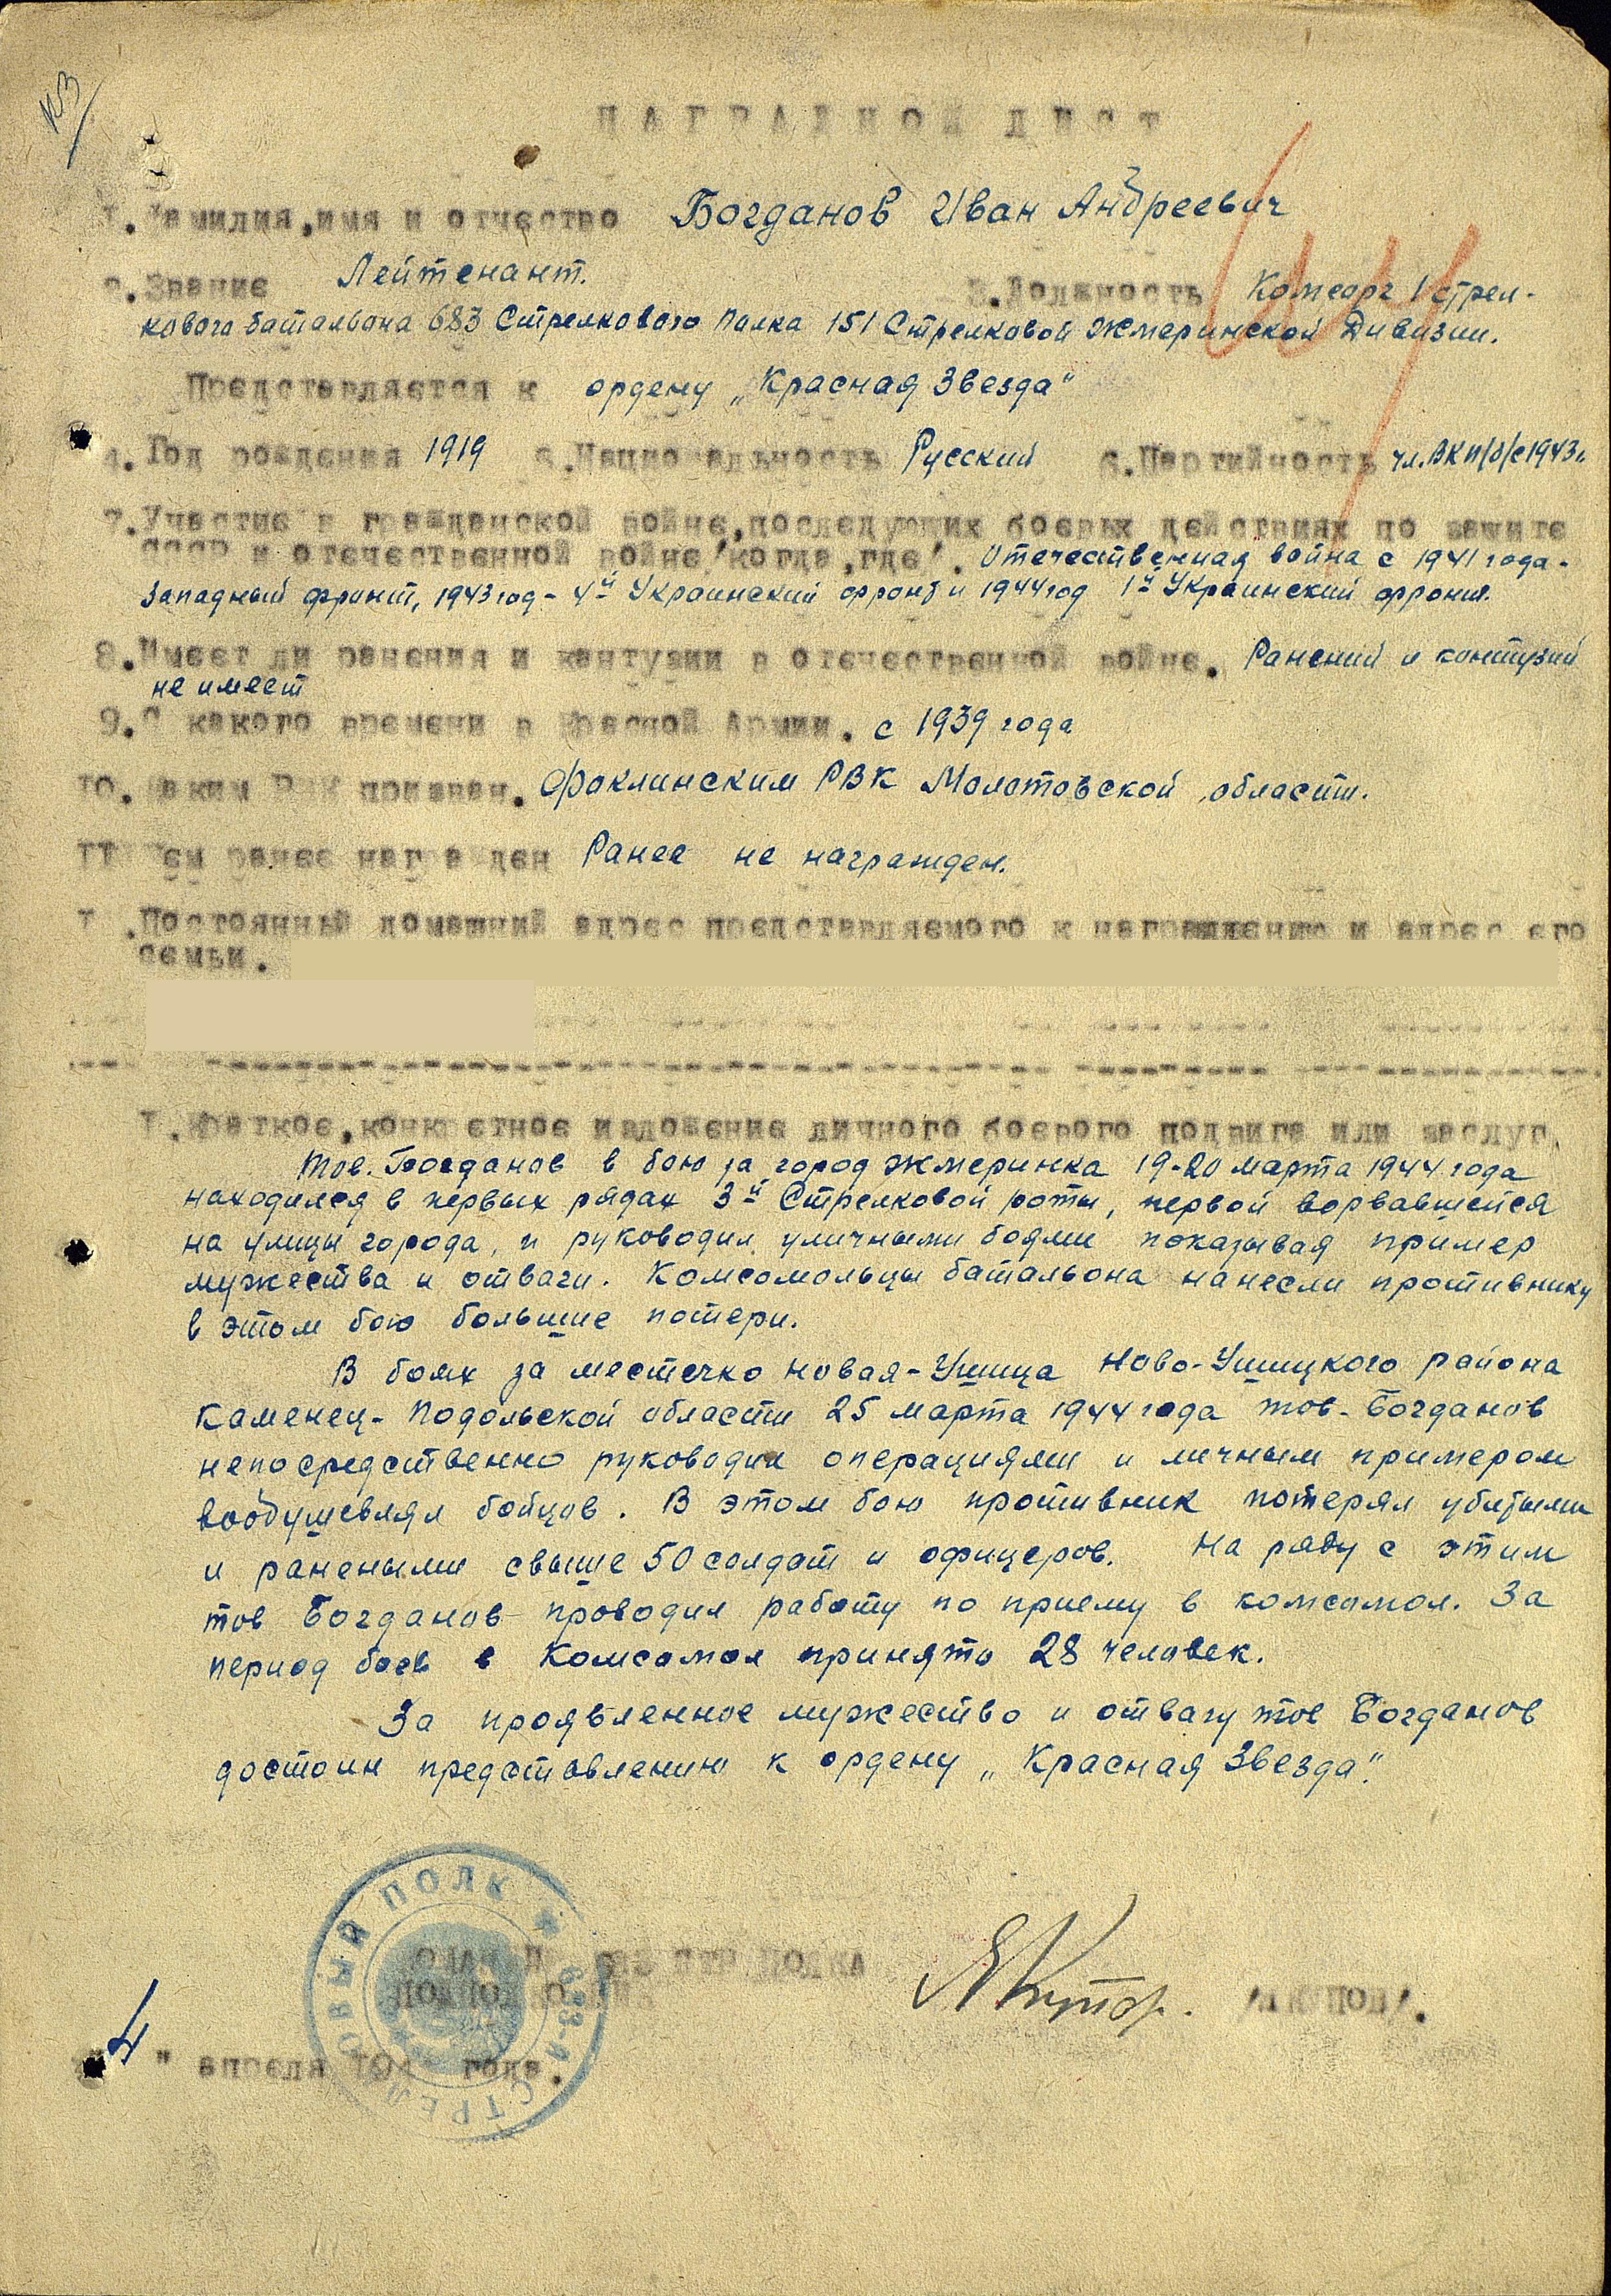 НАГРАДНОЙ ЛИСТ
1. Фамилия, имя и отчество Богданов Иван Андреевич
2. Звание Лейтенант. 3. Должность Комсорг 1 стрел-
кового батальона 683 Стрелкового Полка 151 Стрелковой Жмеринской Дивизии.
Представляется к ордену „Красная Звезда"
4. Год рождения 1919 5. Национальность Русский 6. Партийность чл. ВКП/б/с 1943г.
7. Участие в гражданской войне, последующих боевых действиях по защите
СССР и отечественной войне /когда, где/. Отечественная война с 1941 года -
Западный фронт, 1943 год - 4й Украинский фронт и 1944 год 1й Украинский фронт.
8. Имеет ли ранения и контузии в отечественной войне. Ранений и контузий
не имеет
9. С какого времени в Красной Армии. с 1939 года
10. Каким РВК призван. Фоклинским РВК Молотовской области.
11 Чем ранее награжден Ранее не награжден.
1 . Постоянный домашний адрес представляемого к награждению и адрес его
семьи.
1 . Краткое, конкретное изложение личного боевого подвига или заслуг.
Тов. Богданов в бою за город Жмеринка 19-20 марта 1944 года
находился в первых рядах 3й Стрелковой роты, первой ворвавшейся
на улицы города, и руководил уличными боями показывая пример
мужества и отваги. Комсомольцы батальона нанесли противнику
в этом бою большие потери.
В боях за местечко Новая-Ушица Ново-Ушицкого района
Каменец-Подольской области 25 марта 1944 года тов. Богданов
непосредственно руководил операциями и личным примером
воодушевлял бойцов. В этом бою противник потерял убитыми
и ранеными свыше 50 солдат и офицеров. На ряду с этим
тов Богданов проводил работу по приему в комсомол. За
период боев в Комсомол принято 28 человек.
За проявленное мужество и отвагу тов Богданов
достоин представлению к ордену „Красная Звезда".
683 СТР ПОЛКА
ПОДПОЛКО
683-й СТРЕЛКОВЫЙ ПОЛК
"4" апреля 194 года.